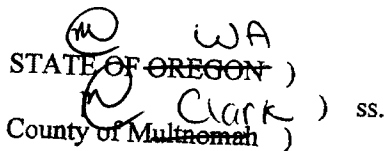 m WA
STATE OF OREGON )
m Clark ) ss.
County of Multnomah )